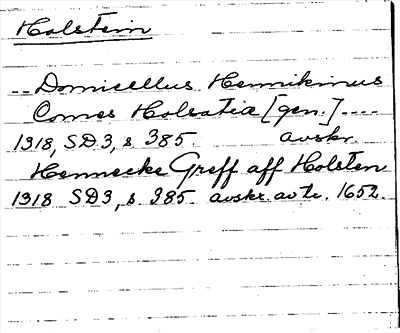 Holstein
-- Domicellus Hennikinus
Comes Holsatie [gen.] ----
1318, SD 3, s. 385. avskr.
Hennecke Greff aff Holsten
1318 SD 3, s. 385. avskr. av tr. 1652.